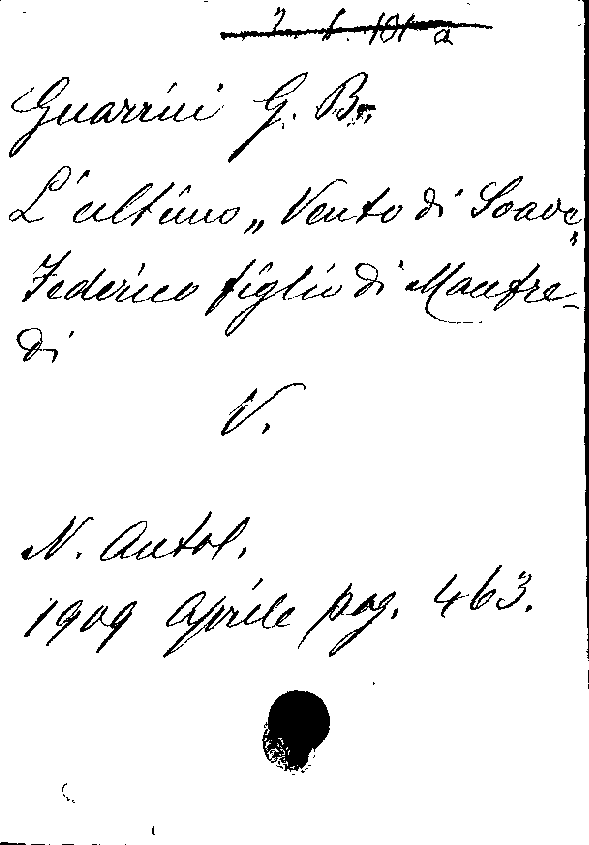 Guarrini G. B.
L'ultimo „Vento di Soave"
Federico figlio di Manfre-
di
V.
N. Antol.
1909 Aprile pag. 463.